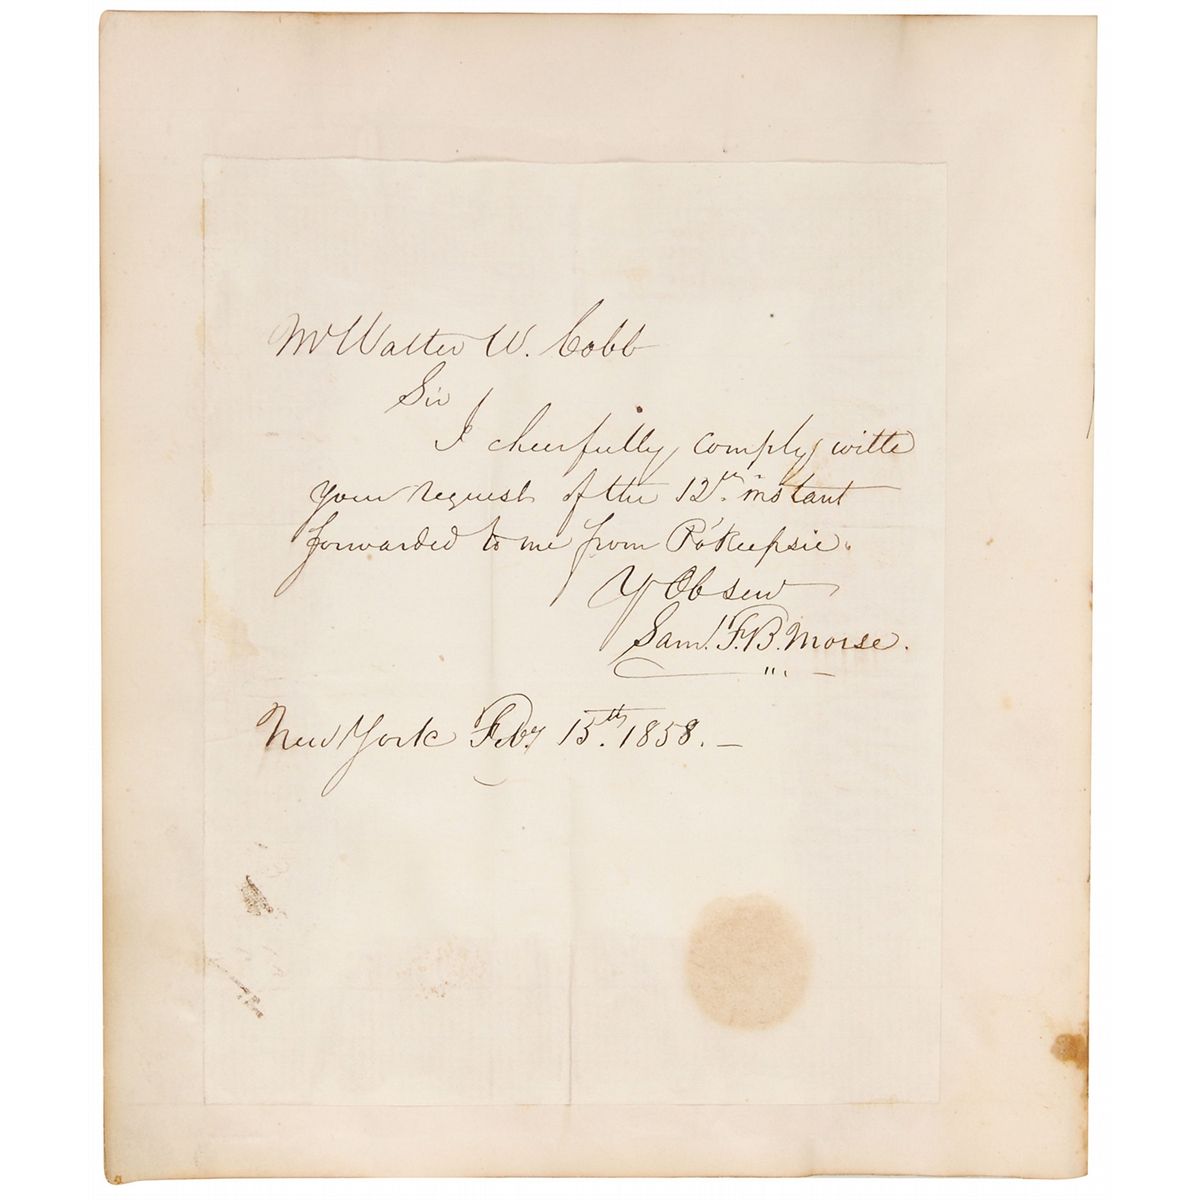 Mr Walter W. Cobb
Sir
I cheerfully comply with
your request of the 12th. instant
forwarded to me from Po'Keepsie.
Yr Ob serv
Saml. F. B. Morse.
New York Feby 15th. 1858. —